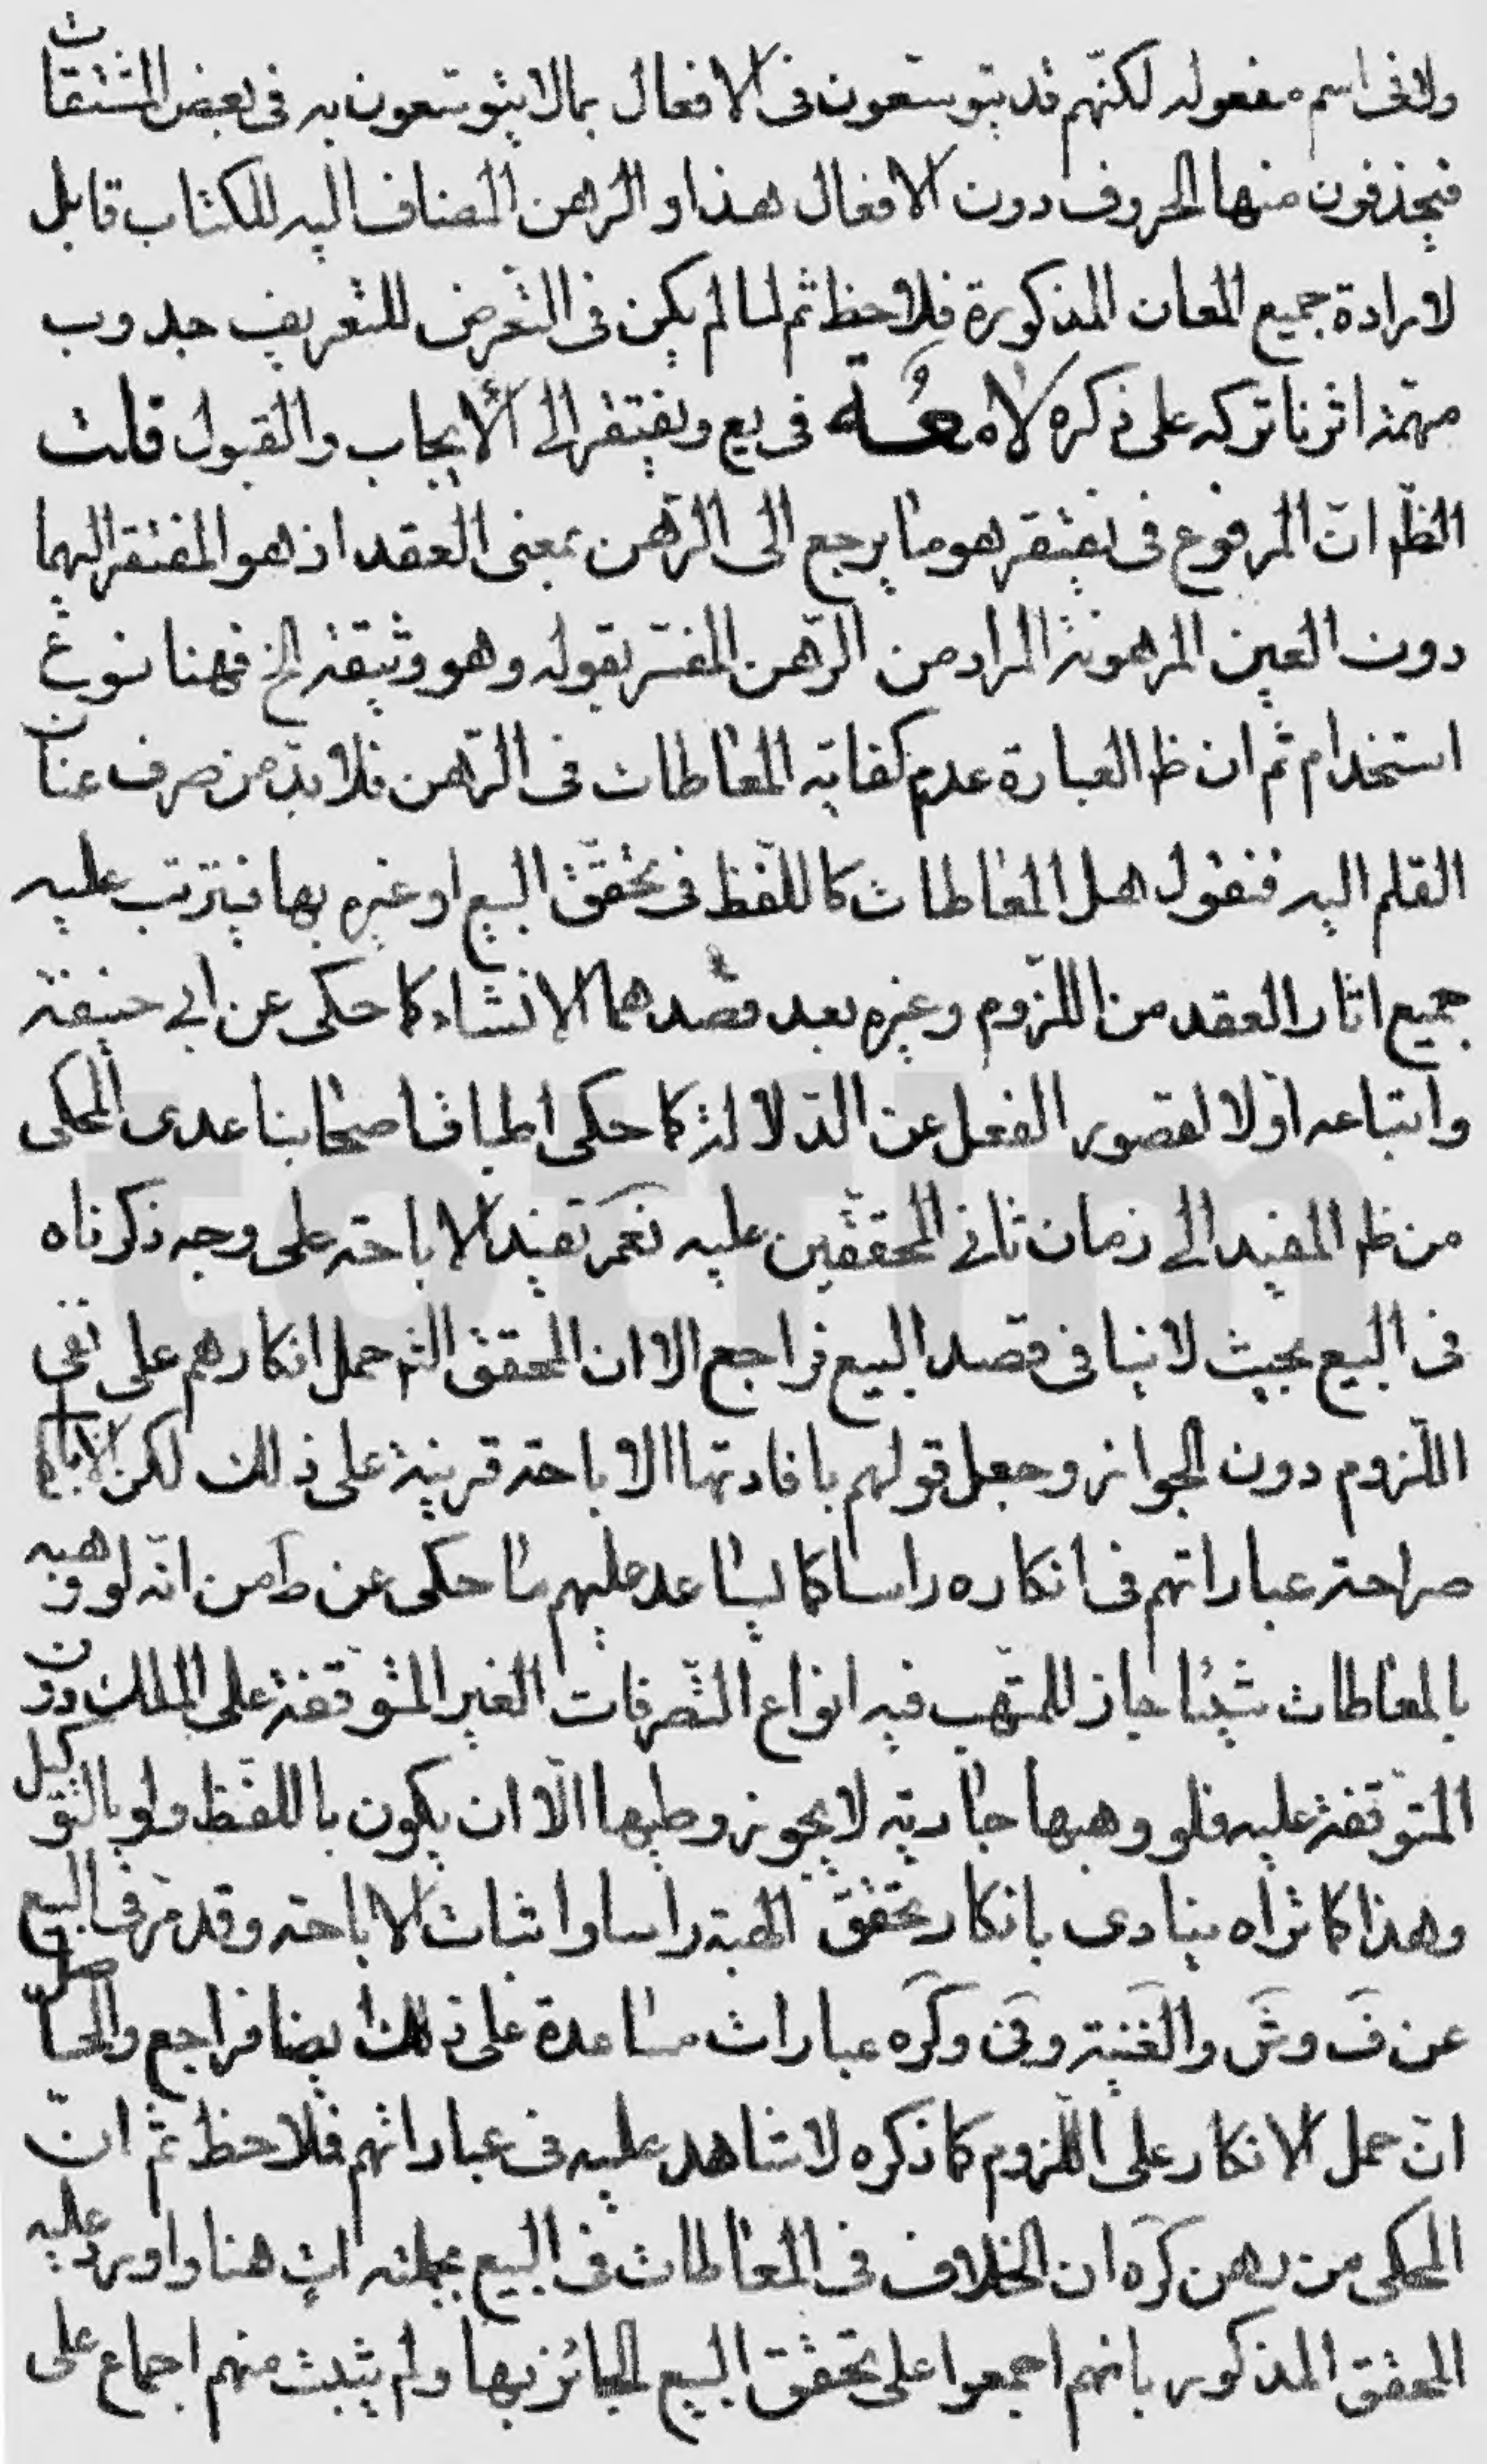 ولا فى اسم مفعوله لكنّهم قد يتوسّعون فى الافعال بما لا يتوسّعون به فى بعض المشتقات
فيحذفون منها الحروف دون الافعال هذا و الرهن المضاف اليه للكتاب قابل
لارادة جميع المعان المذكورة فلاحظ ثم لما لم يكن فى التعرض للتعريف جدوب
مهمّة اثرنا تركه على ذكره لامعة فى يع ويفتقر الى الايجاب والقبول قلت
الظم انّ المرفوع فى يفتقر هو ما يرجع الى الرّهن بمعنى العقد اذ هو المفتقر اليهما
دون العين المرهونة المراد من الرّهن المفسّر بقوله وهو وثيقة الخ فهنا نوع
استخدام ثم ان ظ العبارة عدم كفاية المعاطات فى الرّهن فلا بدّ من صرف عنان
القلم اليه فنقول هل المعاطات كاللّفظ فى تحقّق البيع او غيره بها فيترتب عليه
جميع اثار العقد من اللّزوم وغيره بعد قصدهما الانشاء كما حكى عن ابى حنيفة
واتباعه او لا لقصور الفعل عن الدّلالة كما حكى اطباق اصحابنا عدى المحكى
من ظ المفيد الى زمان ثانى المحققين عليه نعم تفيد الاباحة على وجه ذكرناه
فى البيع بحيث لا ينافى قصد البيع فراجع الا ان المحقق الثم حمل انكارهم على نفى
اللّزوم دون الجواز وجعل قولهم بافادتها الاباحة قرينة على ذلك لكن
صراحة عباراتهم فى انكاره راسا كما يساعد عليهم ما حكى عن ط من انّه لو وهبه
بالمعاطات شيئا جاز للمتّهب فيه انواع التّصرفات الغير المتوقفة على الملك دون
المتوقفة عليه فلو وهبها جارية لا يجوز وطيها الّا ان يكون باللفظ ولو بالتوكيل
وهذا كما تراه ينادى بانكار تحقق الهبة راسا واثبات الاباحة وقد مرّ فى البيع
عن ف وئر والغنية وفى وكره عبارات مساعدة على ذلك ايضا فراجع والحاصل
انّ حمل الانكار على اللّزوم كما ذكره لا شاهد عليه فى عباراتهم فلاحظ ثم انّ
المحكى من رهن كره ان الخلاف فى المعاطات فى البيع بجملته ات هنا واورد عليه
المحقق المذكور بانهم اجمعوا على تحقق البيع الجائز بها ولم يثبت منهم اجماع على